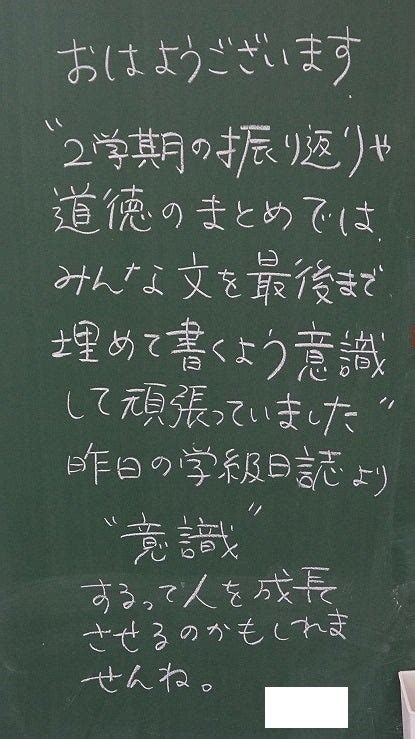 おはようございます
"2学期の振り返りや
道徳のまとめでは、
みんな文を最後まで
埋めて書くよう意識
して頑張っていました"
昨日の学級日誌より
"意識"
するって人を成長
させるのかもしれま
せんね。